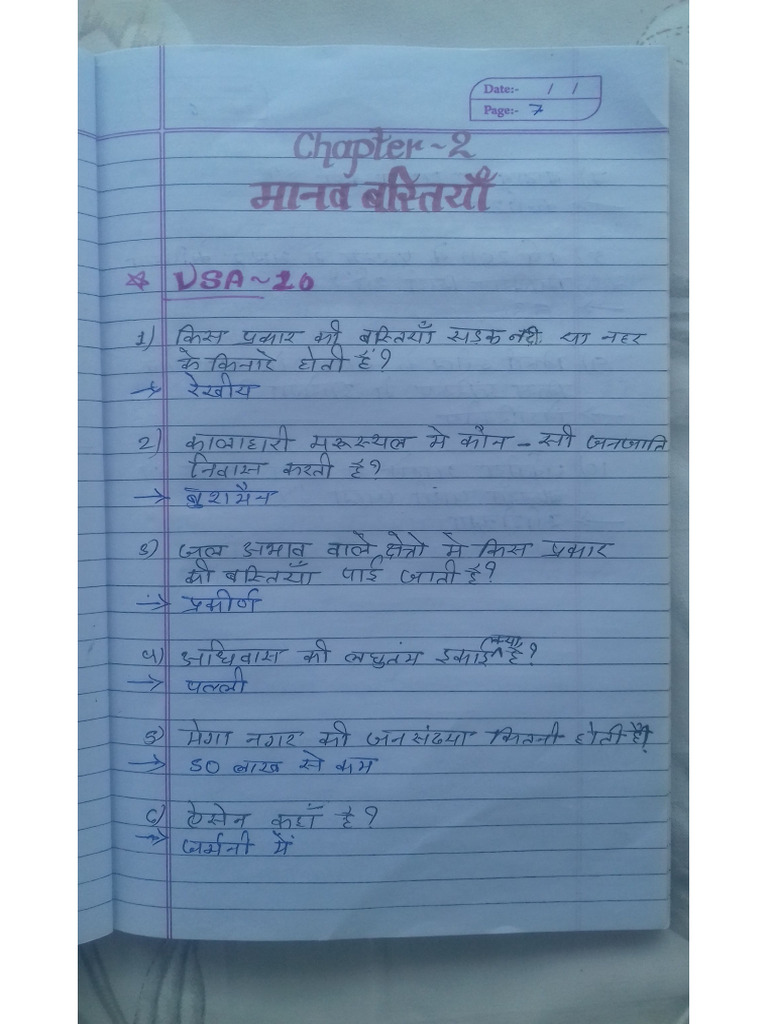 Date:- / /
Page:- 7
Chapter-2
मानव बस्तियाँ
☆ VSA~20
1) किस प्रकार की बस्तियाँ सड़क नदी या नहर
के किनारे होती हैं?
→ रेखीय
2) कालाहारी मरूस्थल मे कौन - सी जनजाति
निवास करती है?
→ बुशमैन
3) जल अभाव वाले क्षेत्रो मे किस प्रकार
की बस्तियाँ पाई जाती है?
→ प्रकीर्ण
4) अधिवास की लघुतम इकाई क्या है?
→ पल्ली
5) मेगा नगर की जनसंख्या कितनी होती है?
→ 50 लाख से कम
6) ऐसेन कहाँ है?
→ जर्मनी में